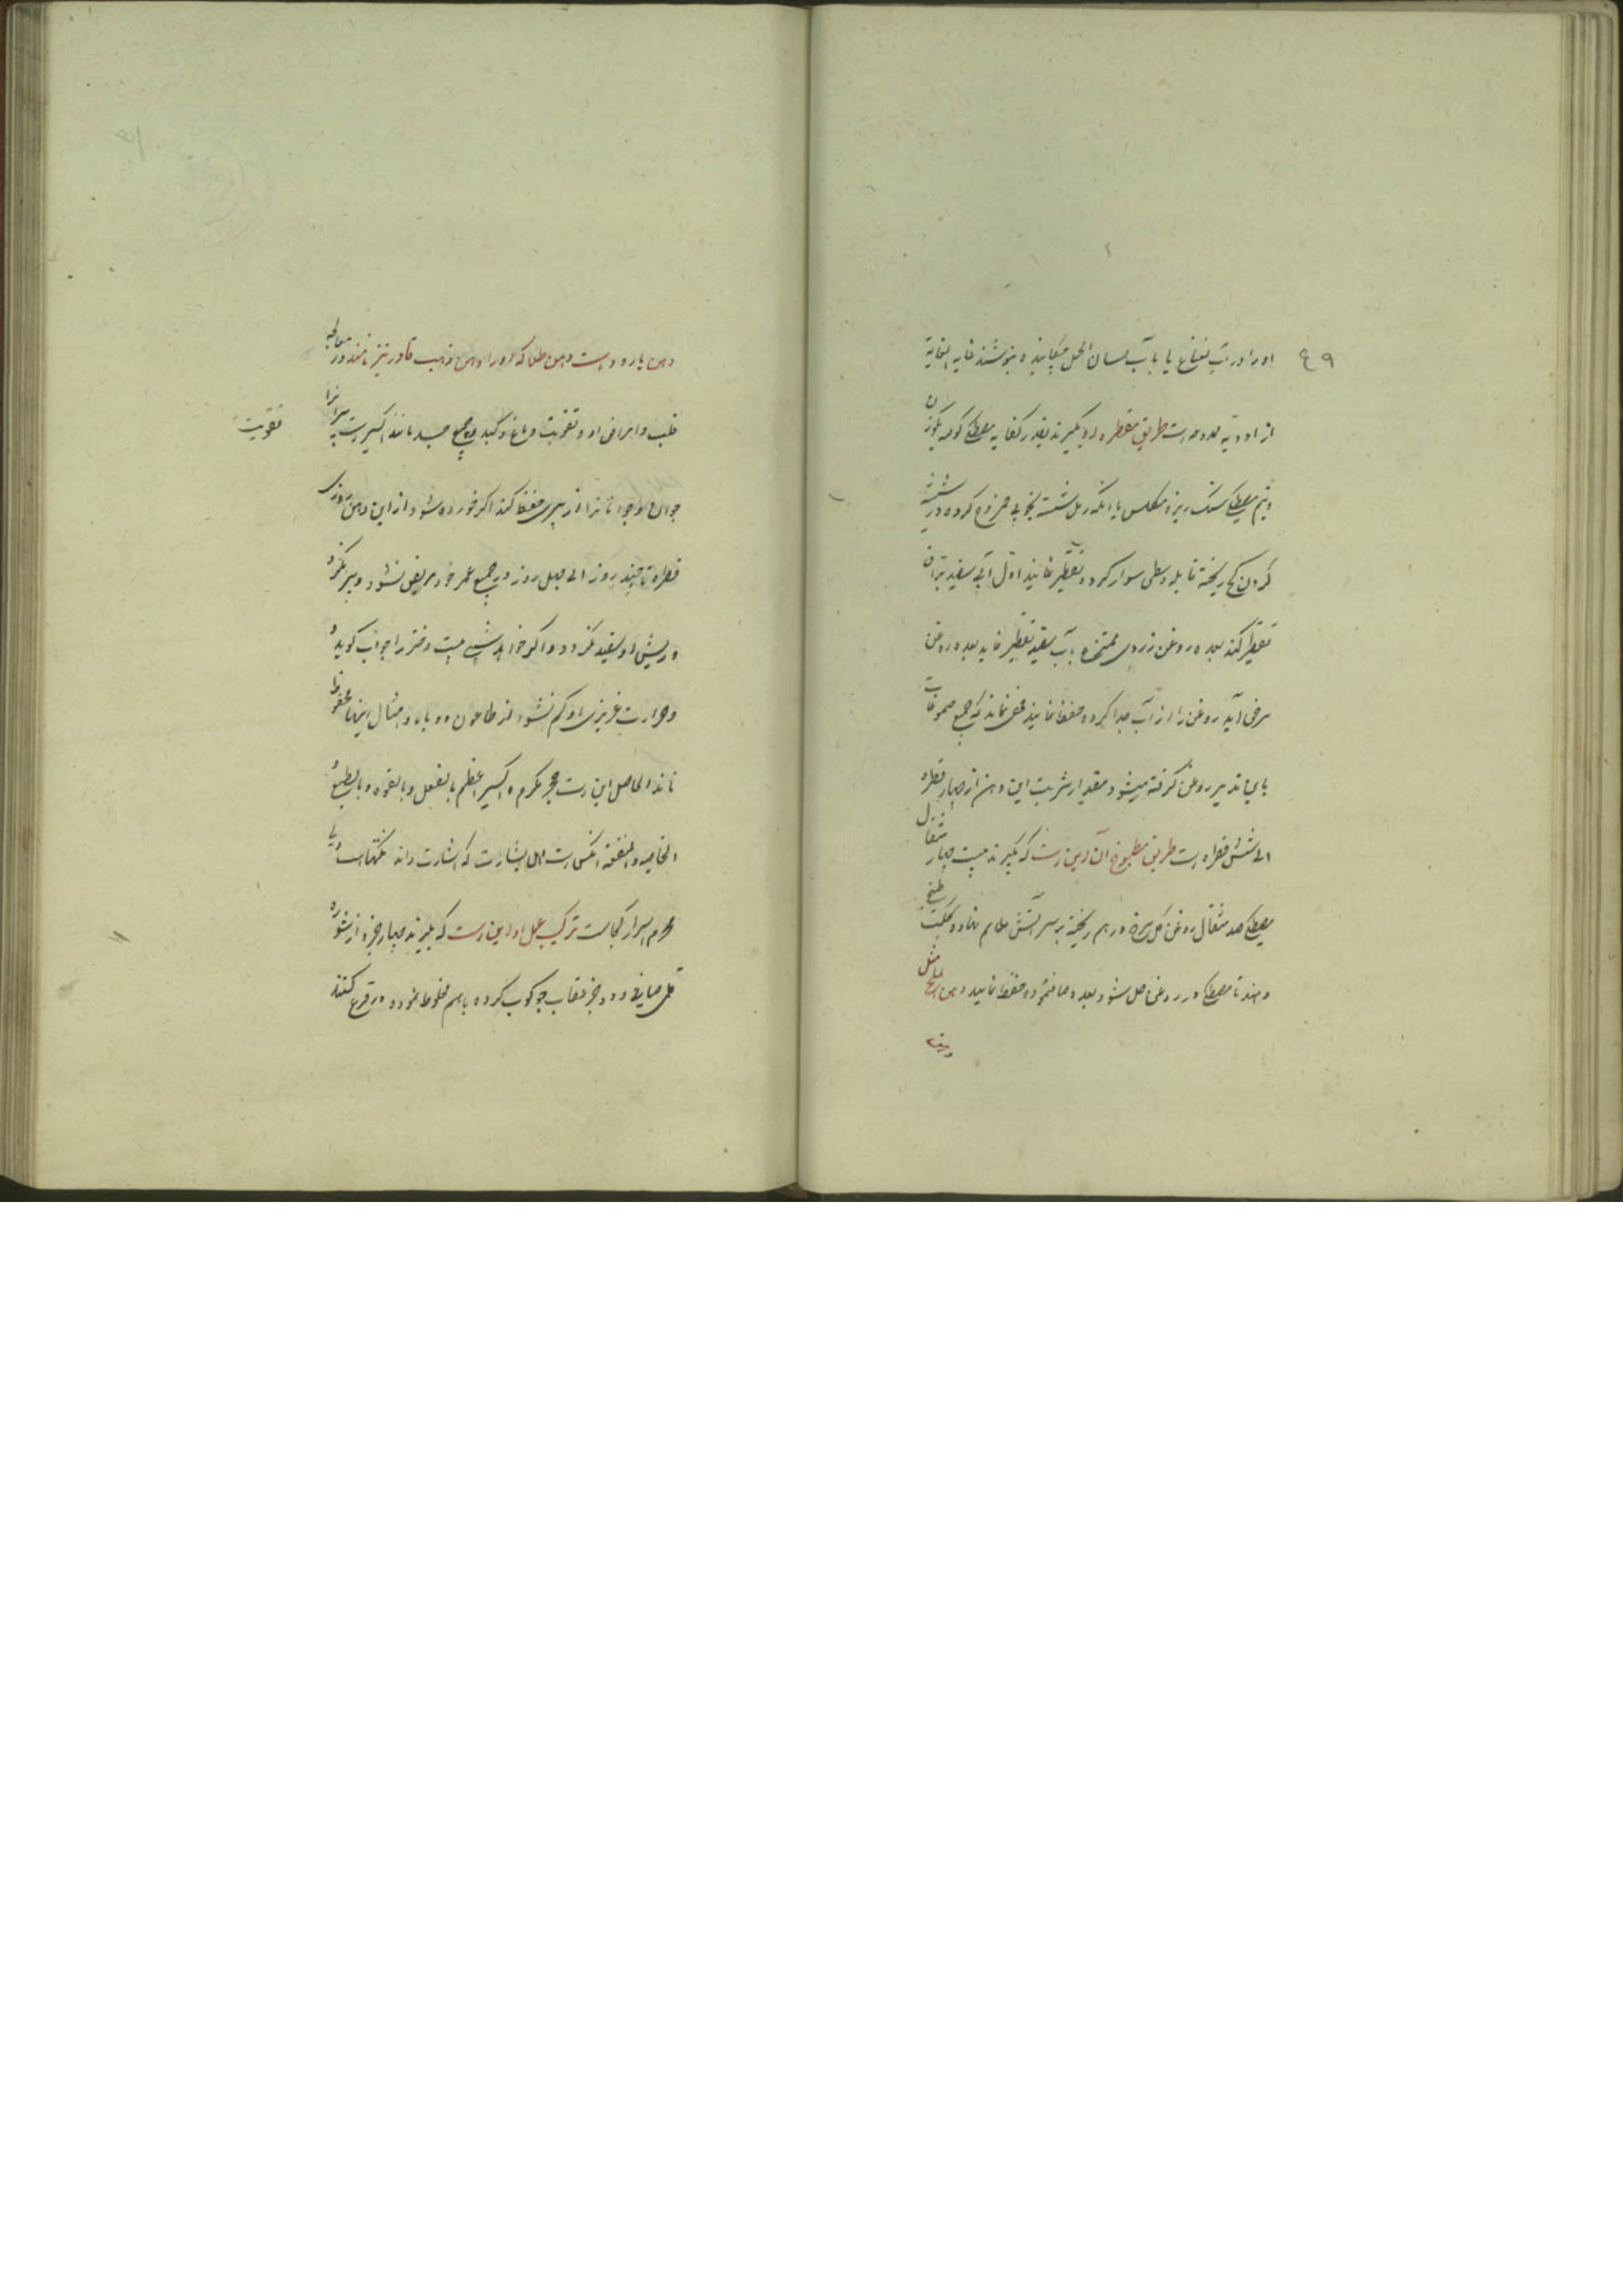 ٤٩
او را در آب نعناع یا با آب لسان الحمل چکانیده بنوشند غایه الغایة
از ادویه است طریق مقطره او بگیرند بقدر کفایه مصطکی کوفته یکوزن
و نیم مصطکی سنک ریزه مکلس یا آنکه رمل شسته بخوبی ممزوج کرده در شیشه
کردن کج ریخته قابله وسطی سوار کرده تقطیر نمایند اول آبی سفید براق
تقطیر کند بعده روغن زردی ممتزج بآب سفید تقطیر نماید بعده روغن
سرخی آید روغن را از آب جدا کرده حفظ نمایند مخفی نماند که جمیع صموغات
باین تدبیر روغن گرفته میشود مقدار شربت این دهن از چهار قطره
الی شش قطره است طریق مطبوخ آن این است که بگیرند بیست چهار مثقال
مصطکی صد مثقال روغن کل سرخ در هم ریخته بر سر آتش ملایم نهاده
دهند تا مصطکی در روغن حل شود بعده صاف نموده حفظ نمایند دهن الملح مثل
دهن
دهن بارود است دهن طلا که او را دهن ذهب قادر نیز نامند در معالجه
قلب و امراض او و تقویت دماغ و کبد و جمیع جسد مانند اکسیر است پیرانرا
تقویت
جوان و جوانانرا از پیری حفظ کند اگر خورده شود از این دهن روزی
قطره تا چند روز الی چهل روز در جمیع عمر خود مریض نشود و پیر نگردد
و ریش او سفید نگردد و اگر خواهد شبی بیست دختر را جواب گوید
و حرارت غریزی او کم نشود از طاعون و وبا و امثال اینها محفوظ
ماند الحاصل این است حجر مکرم و اکسیر اعظم بالفعل و بالقوه و بالطبع
الخاصیه و المنفعة آنکس است اهل بشارت که اشارت داند نکتهاست بسی
محرم اسرار کجاست ترکیب عمل او این است که بگیرند چهار جزء از شوره
قلمی صافی و دو جزء عقاب جو کوب کرده باهم مخلوط نموده در قرع کنند